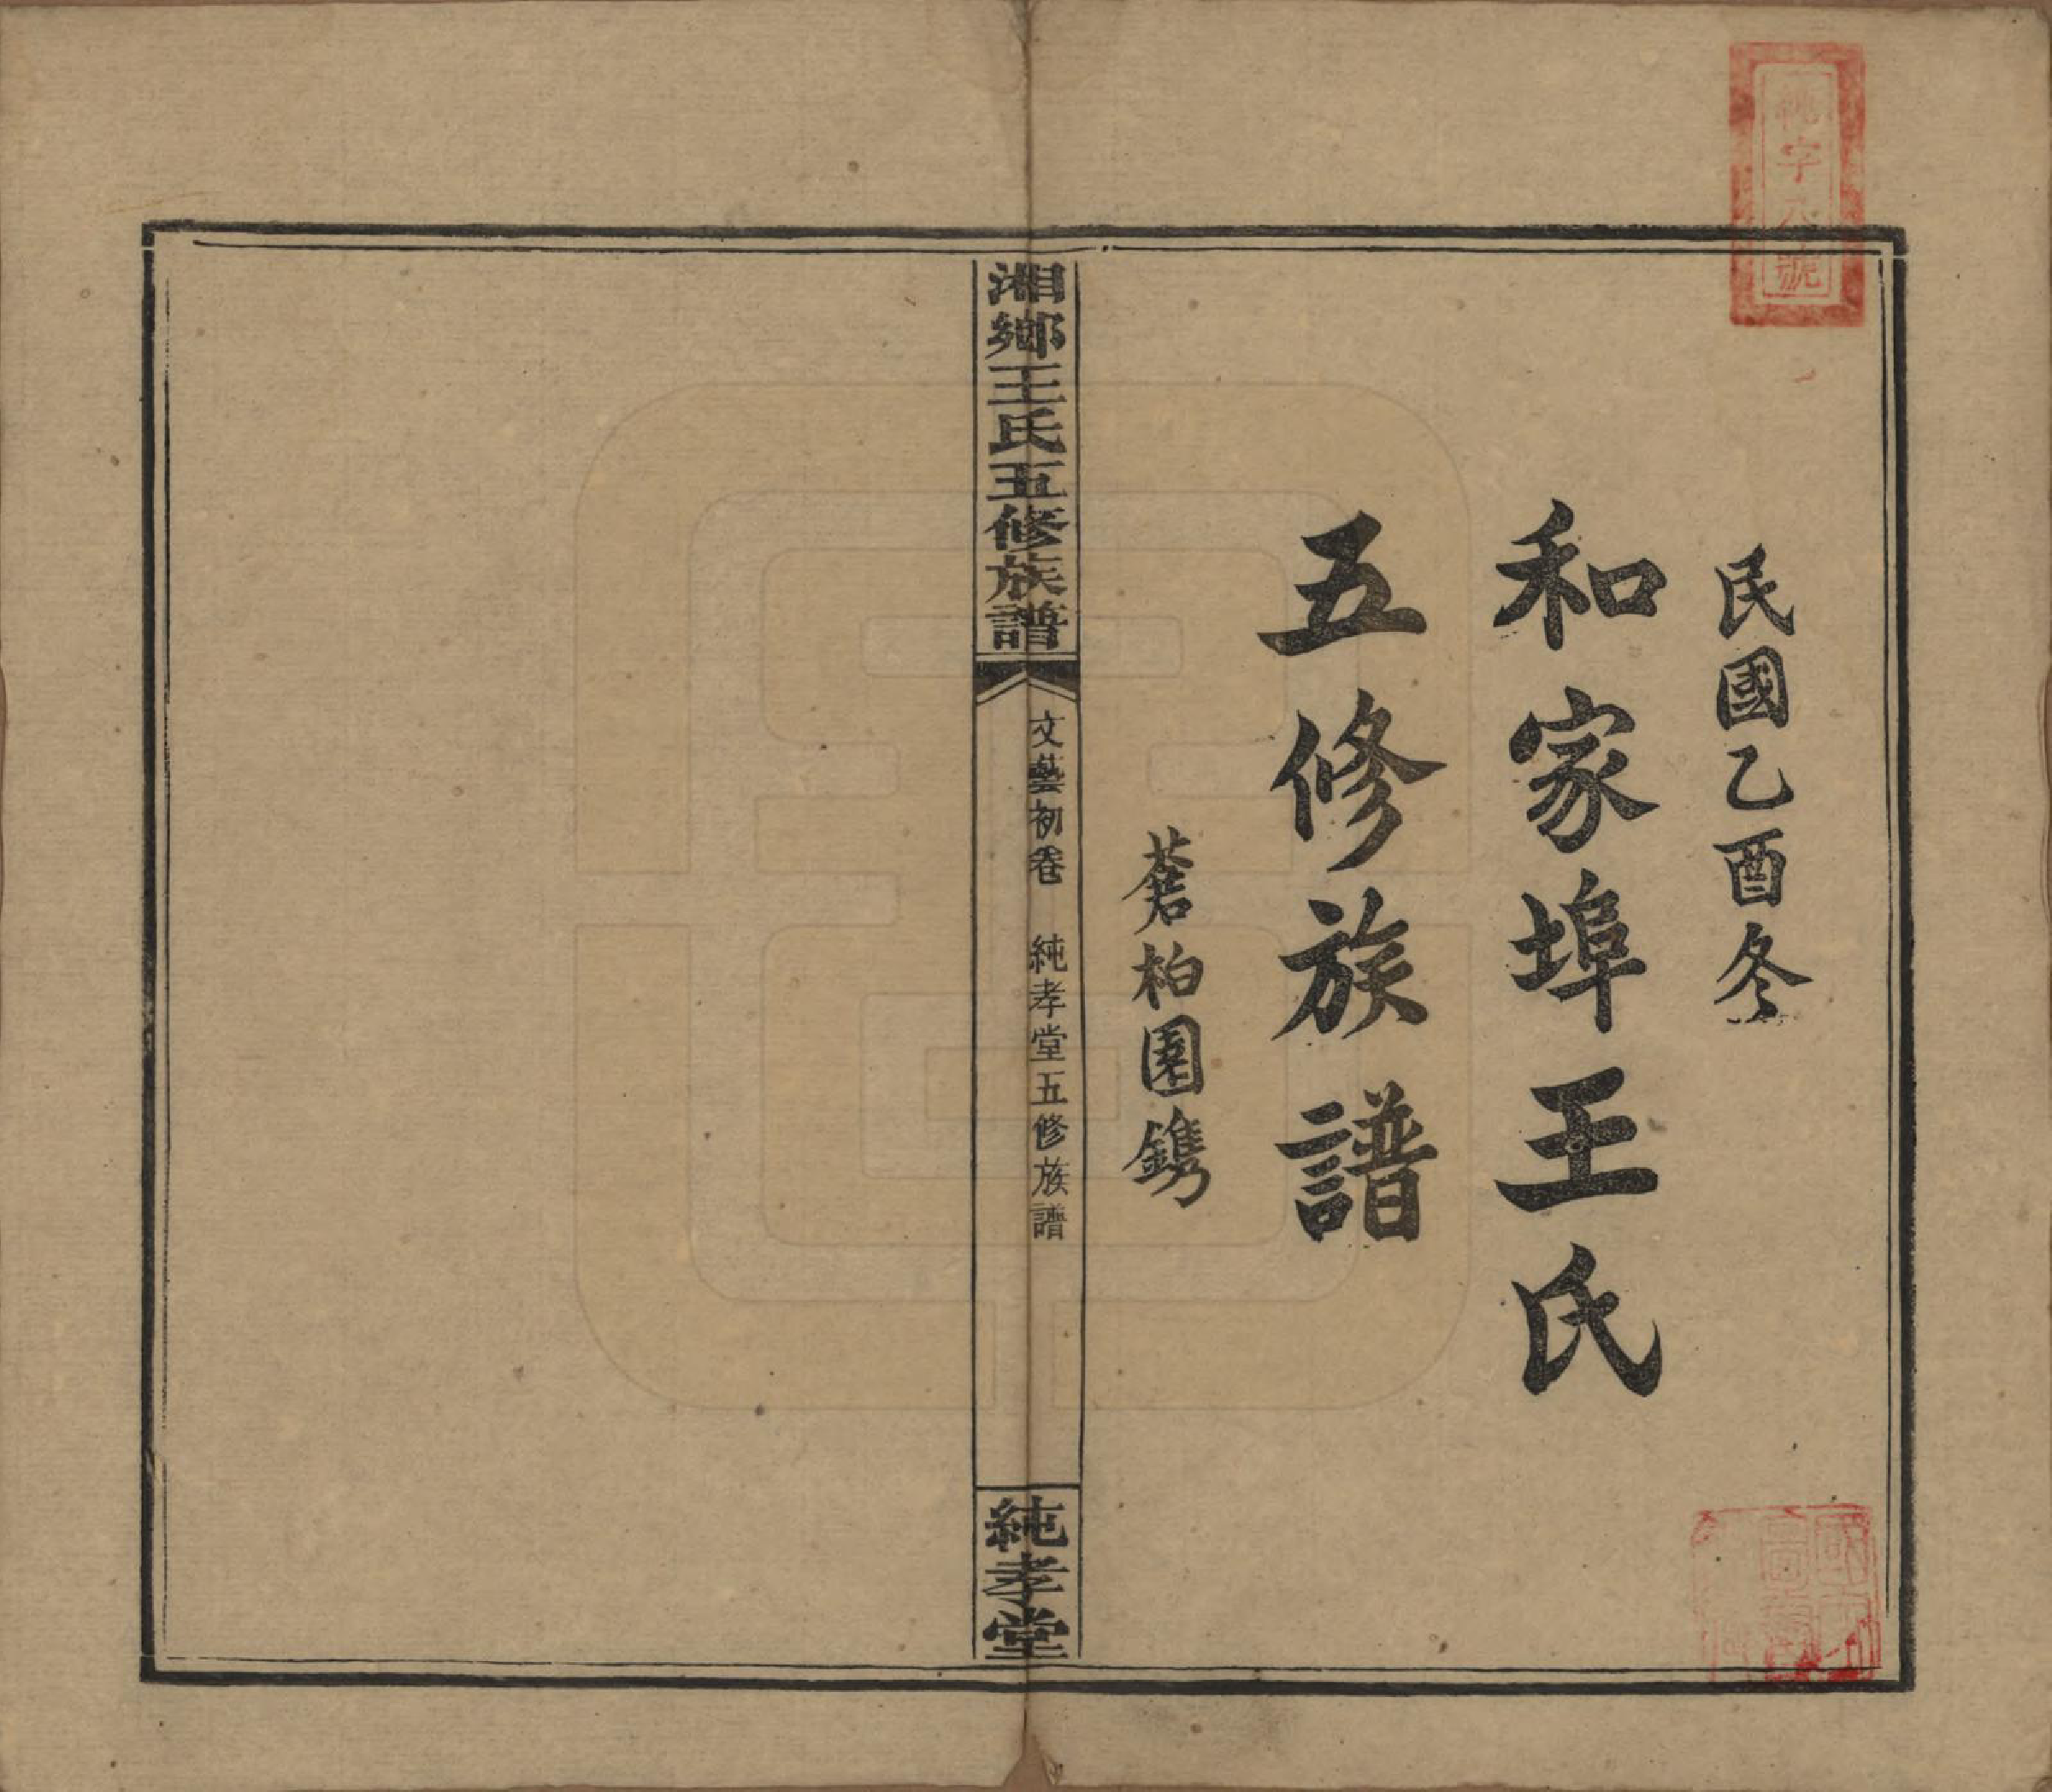 民國乙酉冬
和家埠王氏
五修族譜
蒼柏園鐫
湘鄉王氏五修族譜
文藝初卷 純孝堂五修族譜
純孝堂
字八號